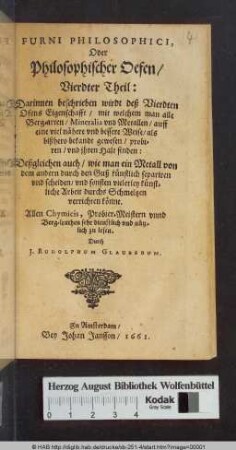 FURNI PHILOSOPHICI,
Oder
Philosophischer Oefen/
Vierdter Theil:
Darinnen beschrieben wirdt deß Vierdten
Ofens Eigenschafft / mit welchem man alle
Bergarten / Mineralia und Metallen / auff
eine viel nähere und bessere Weise / als
bißhero bekandt gewesen / probi-
ren / und ihren Halt finden:
Deßgleichen auch / wie man ein Metall von
dem andern durch den Guß künstlich separiren
und scheiden / und sonsten vielerley künst-
liche Arbeit durchs Schmeltzen
verrichten könne.
Allen Chymicis, Probier-Meistern unnd
Berg-leuthen sehr dienstlich und nütz-
lich zu lesen.
Durch
J. RUDOLPHUM GLAUBERUM.
In Amsterdam /
Bey Johan Jansson / 1661.
Herzog August Bibliothek Wolfenbüttel
Kodak
Color
Gray Scale
© HAB http://diglib.hab.de/drucke/xb-251-4/start.htm?image=00001